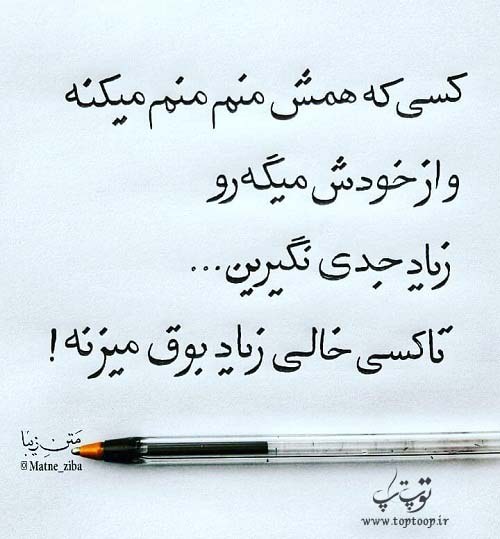 کسی که همش منم منم میکنه
و از خودش میگه رو
زیاد جدی نگیرین...
تاکسی خالی زیاد بوق میزنه!
مَتنِ زیبا
@Matne_ziba
توپ تاپ
www.toptoop.ir